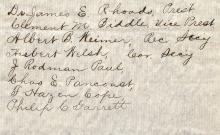 Dr. James E. Rhoads, Prest
Clement M. Biddle, Vice Prest
Albert B. Weimer, Rec Secy
Herbert Welsh, Cor. Secy
J Rodman Paul,
Chas E. Pancoast,
G Hazen Cope
Philip C Garrett